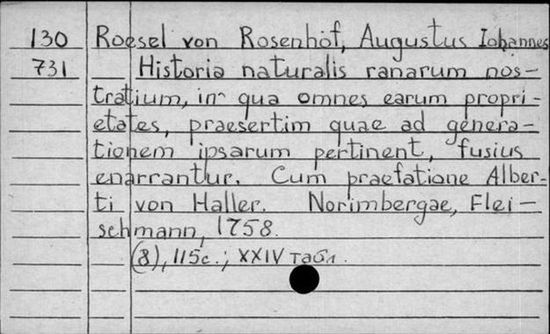 130 Roesel von Rosenhof, Augustus Iohannes
731 Historia naturalis ranarum nos-
tratium, in qua omnes earum propri-
etates, praesertim quae ad genera-
tionem ipsarum pertinent, fusius
enarrantur. Cum praefatione Alber-
ti von Haller. Norimbergae, Flei-
schmann, 1758.
(8), 115с.; XXIV табл.